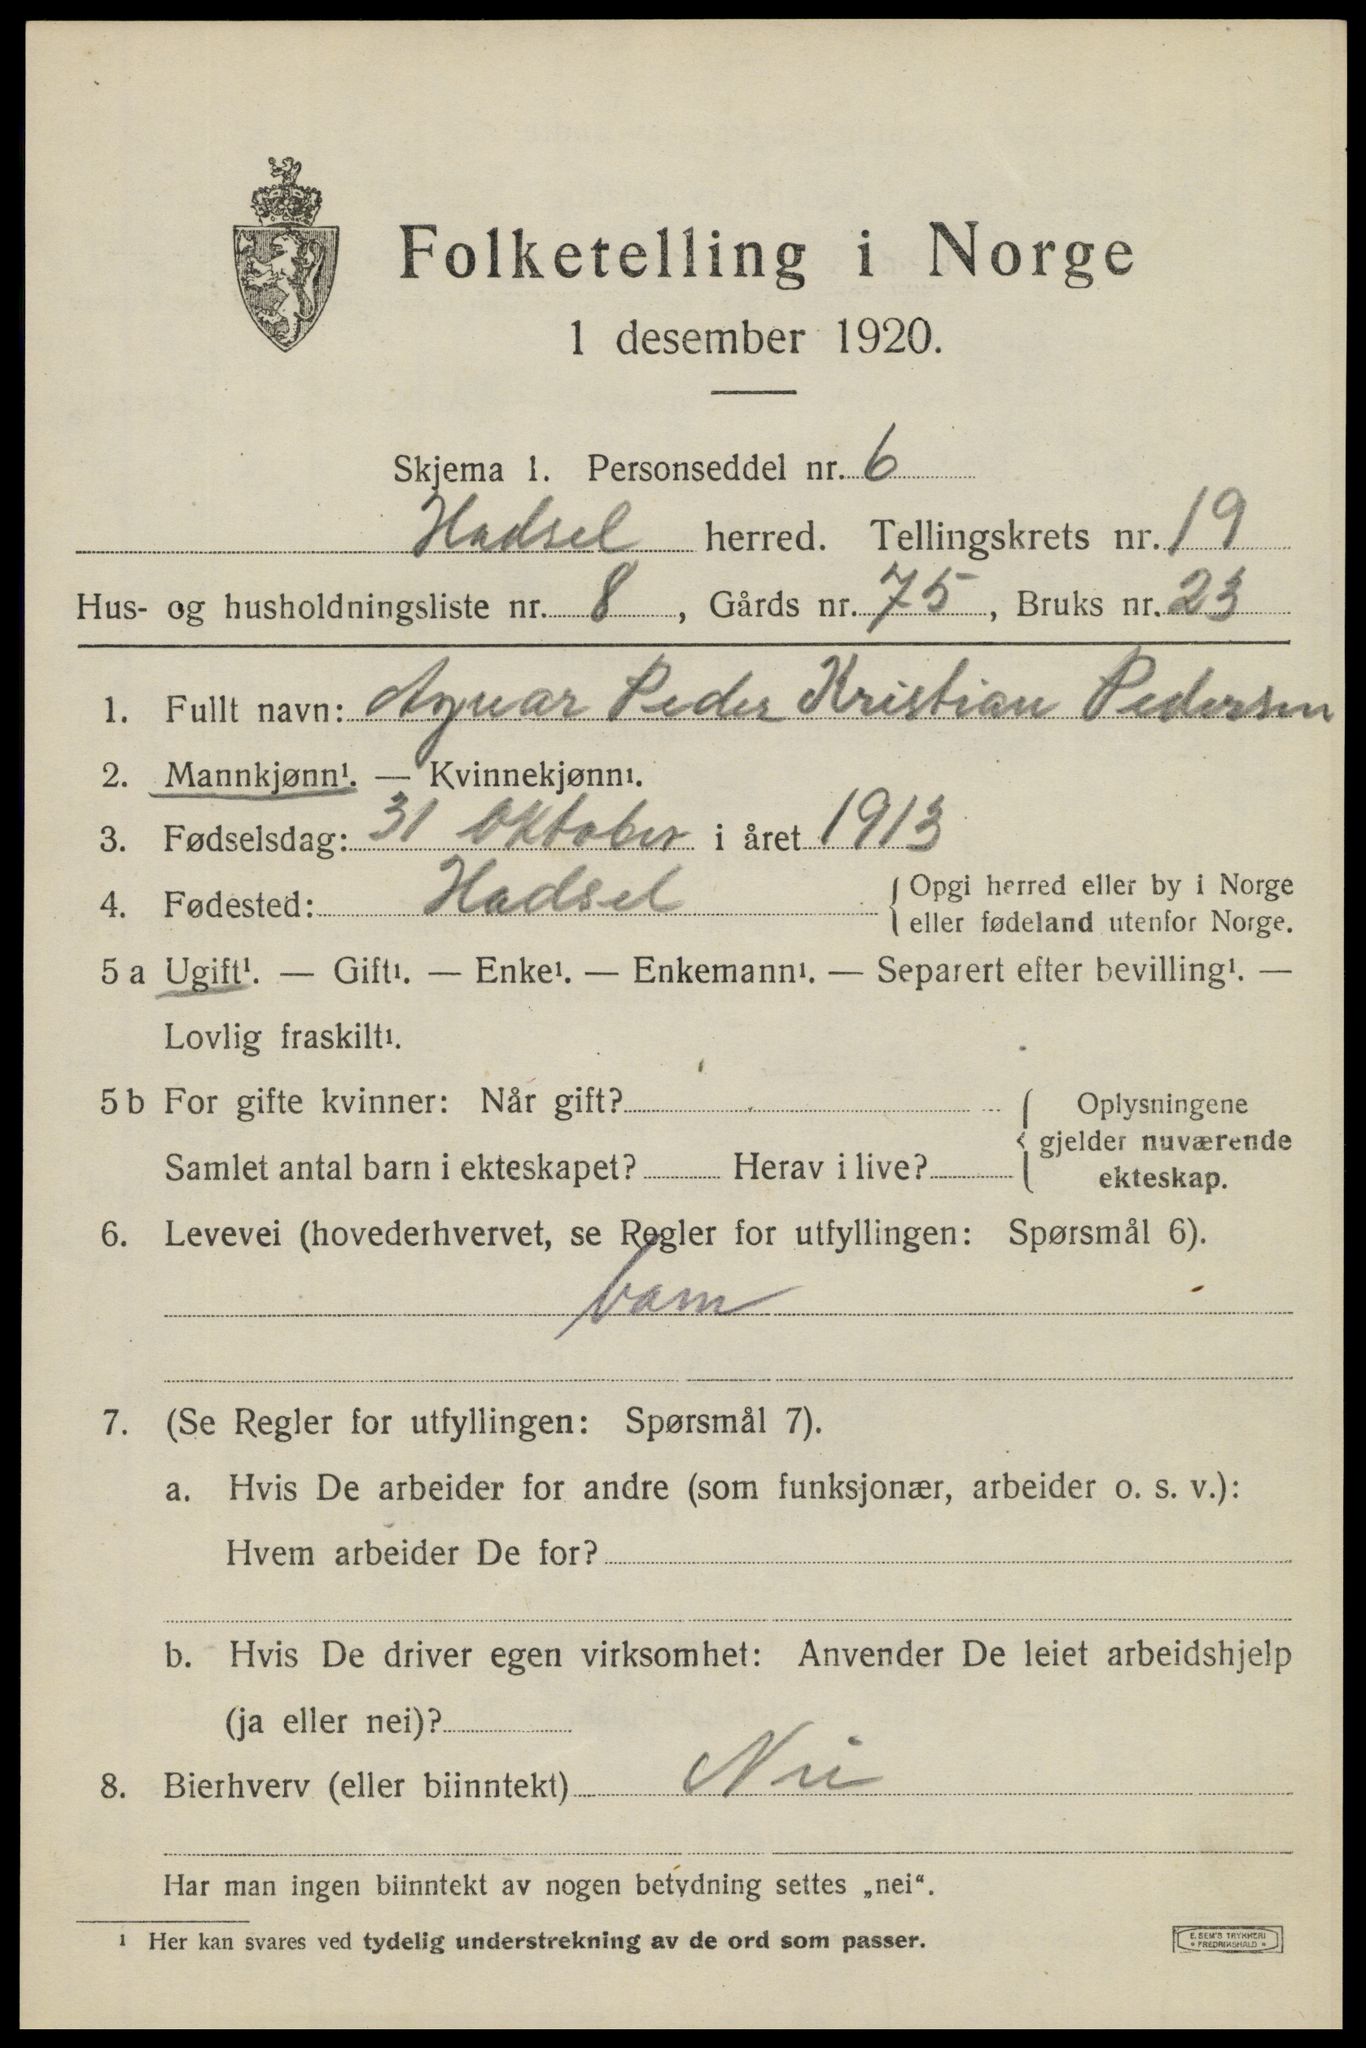 Folketelling i Norge
1 desember 1920.
Skjema 1. Personseddel nr. 6
Hadsel herred. Tellingskrets nr. 19
Hus- og husholdningsliste nr. 8, Gårds nr. 75, Bruks nr. 23
1. Fullt navn: Agnar Peder Kristian Pedersen
2. Mannkjønn¹. — Kvinnekjønn¹.
3. Fødselsdag: 31 Oktober i året 1913
4. Fødested: Hadsel { Opgi herred eller by i Norge
eller fødeland utenfor Norge.
5 a Ugift¹. — Gift¹. — Enke¹. — Enkemann¹. — Separert efter bevilling¹. —
Lovlig fraskilt¹.
5 b For gifte kvinner: Når gift? { Oplysningene
gjelder nuværende
Samlet antal barn i ekteskapet? Herav i live? ekteskap.
6. Levevei (hovederhvervet, se Regler for utfyllingen: Spørsmål 6).
barn
7. (Se Regler for utfyllingen: Spørsmål 7).
a. Hvis De arbeider for andre (som funksjonær, arbeider o. s. v.):
Hvem arbeider De for?
b. Hvis De driver egen virksomhet: Anvender De leiet arbeidshjelp
(ja eller nei)?
8. Bierhverv (eller biinntekt) Nei
Har man ingen biinntekt av nogen betydning settes „nei“.
¹ Her kan svares ved tydelig understrekning av de ord som passer.
E. SEM'S TRYKKERI
* FREDRIKSHALD *